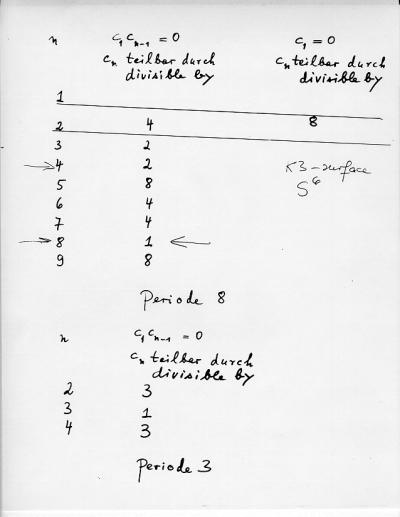 n c₁ cₙ₋₁ = 0 c₁ = 0
cₙ teilbar durch cₙ teilbar durch
divisible by divisible by
1
2 4 8
3 2
→ 4 2 K3-surface
5 8 S⁶
6 4
7 4
→ 8 1 ←
9 8
Periode 8
n c₁ cₙ₋₁ = 0
cₙ teilbar durch
divisible by
2 3
3 1
4 3
Periode 3